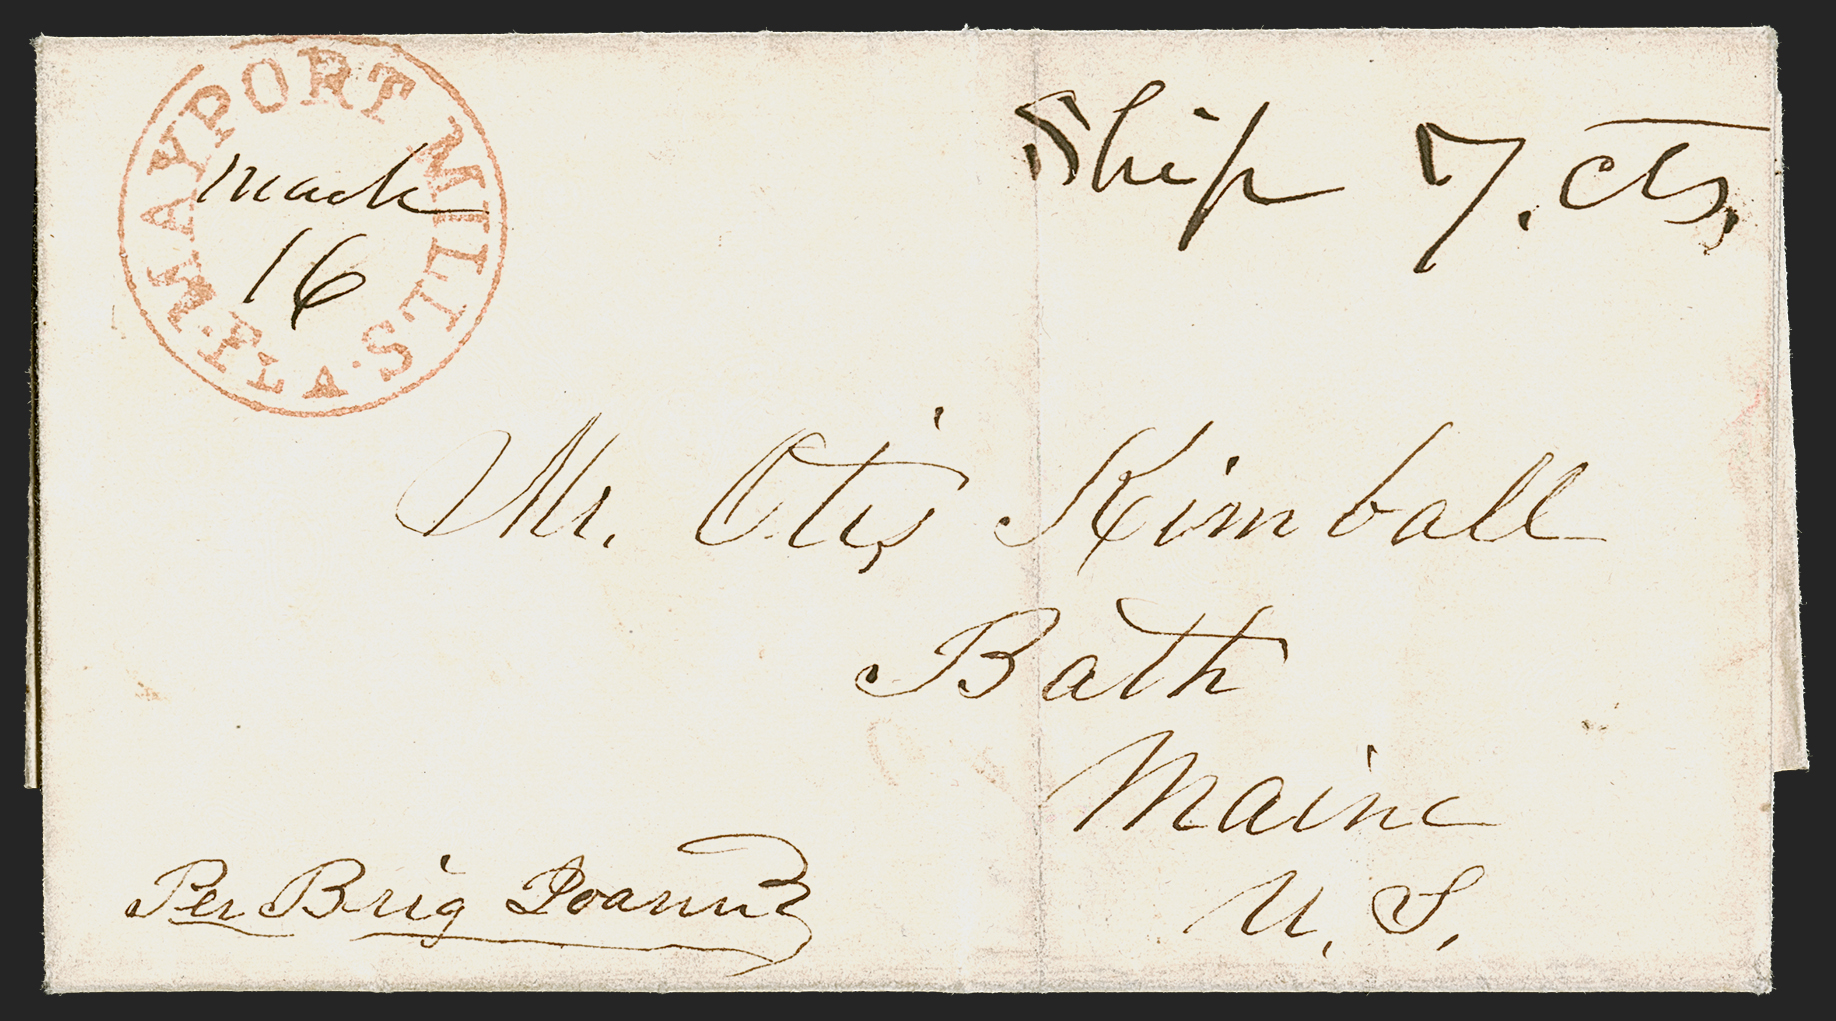 MAYPORT MILLS. A
FL.
March
16
Ship 7. cts.
Mr. Otis Kimball
Bath
Maine
U. S.
Per Brig